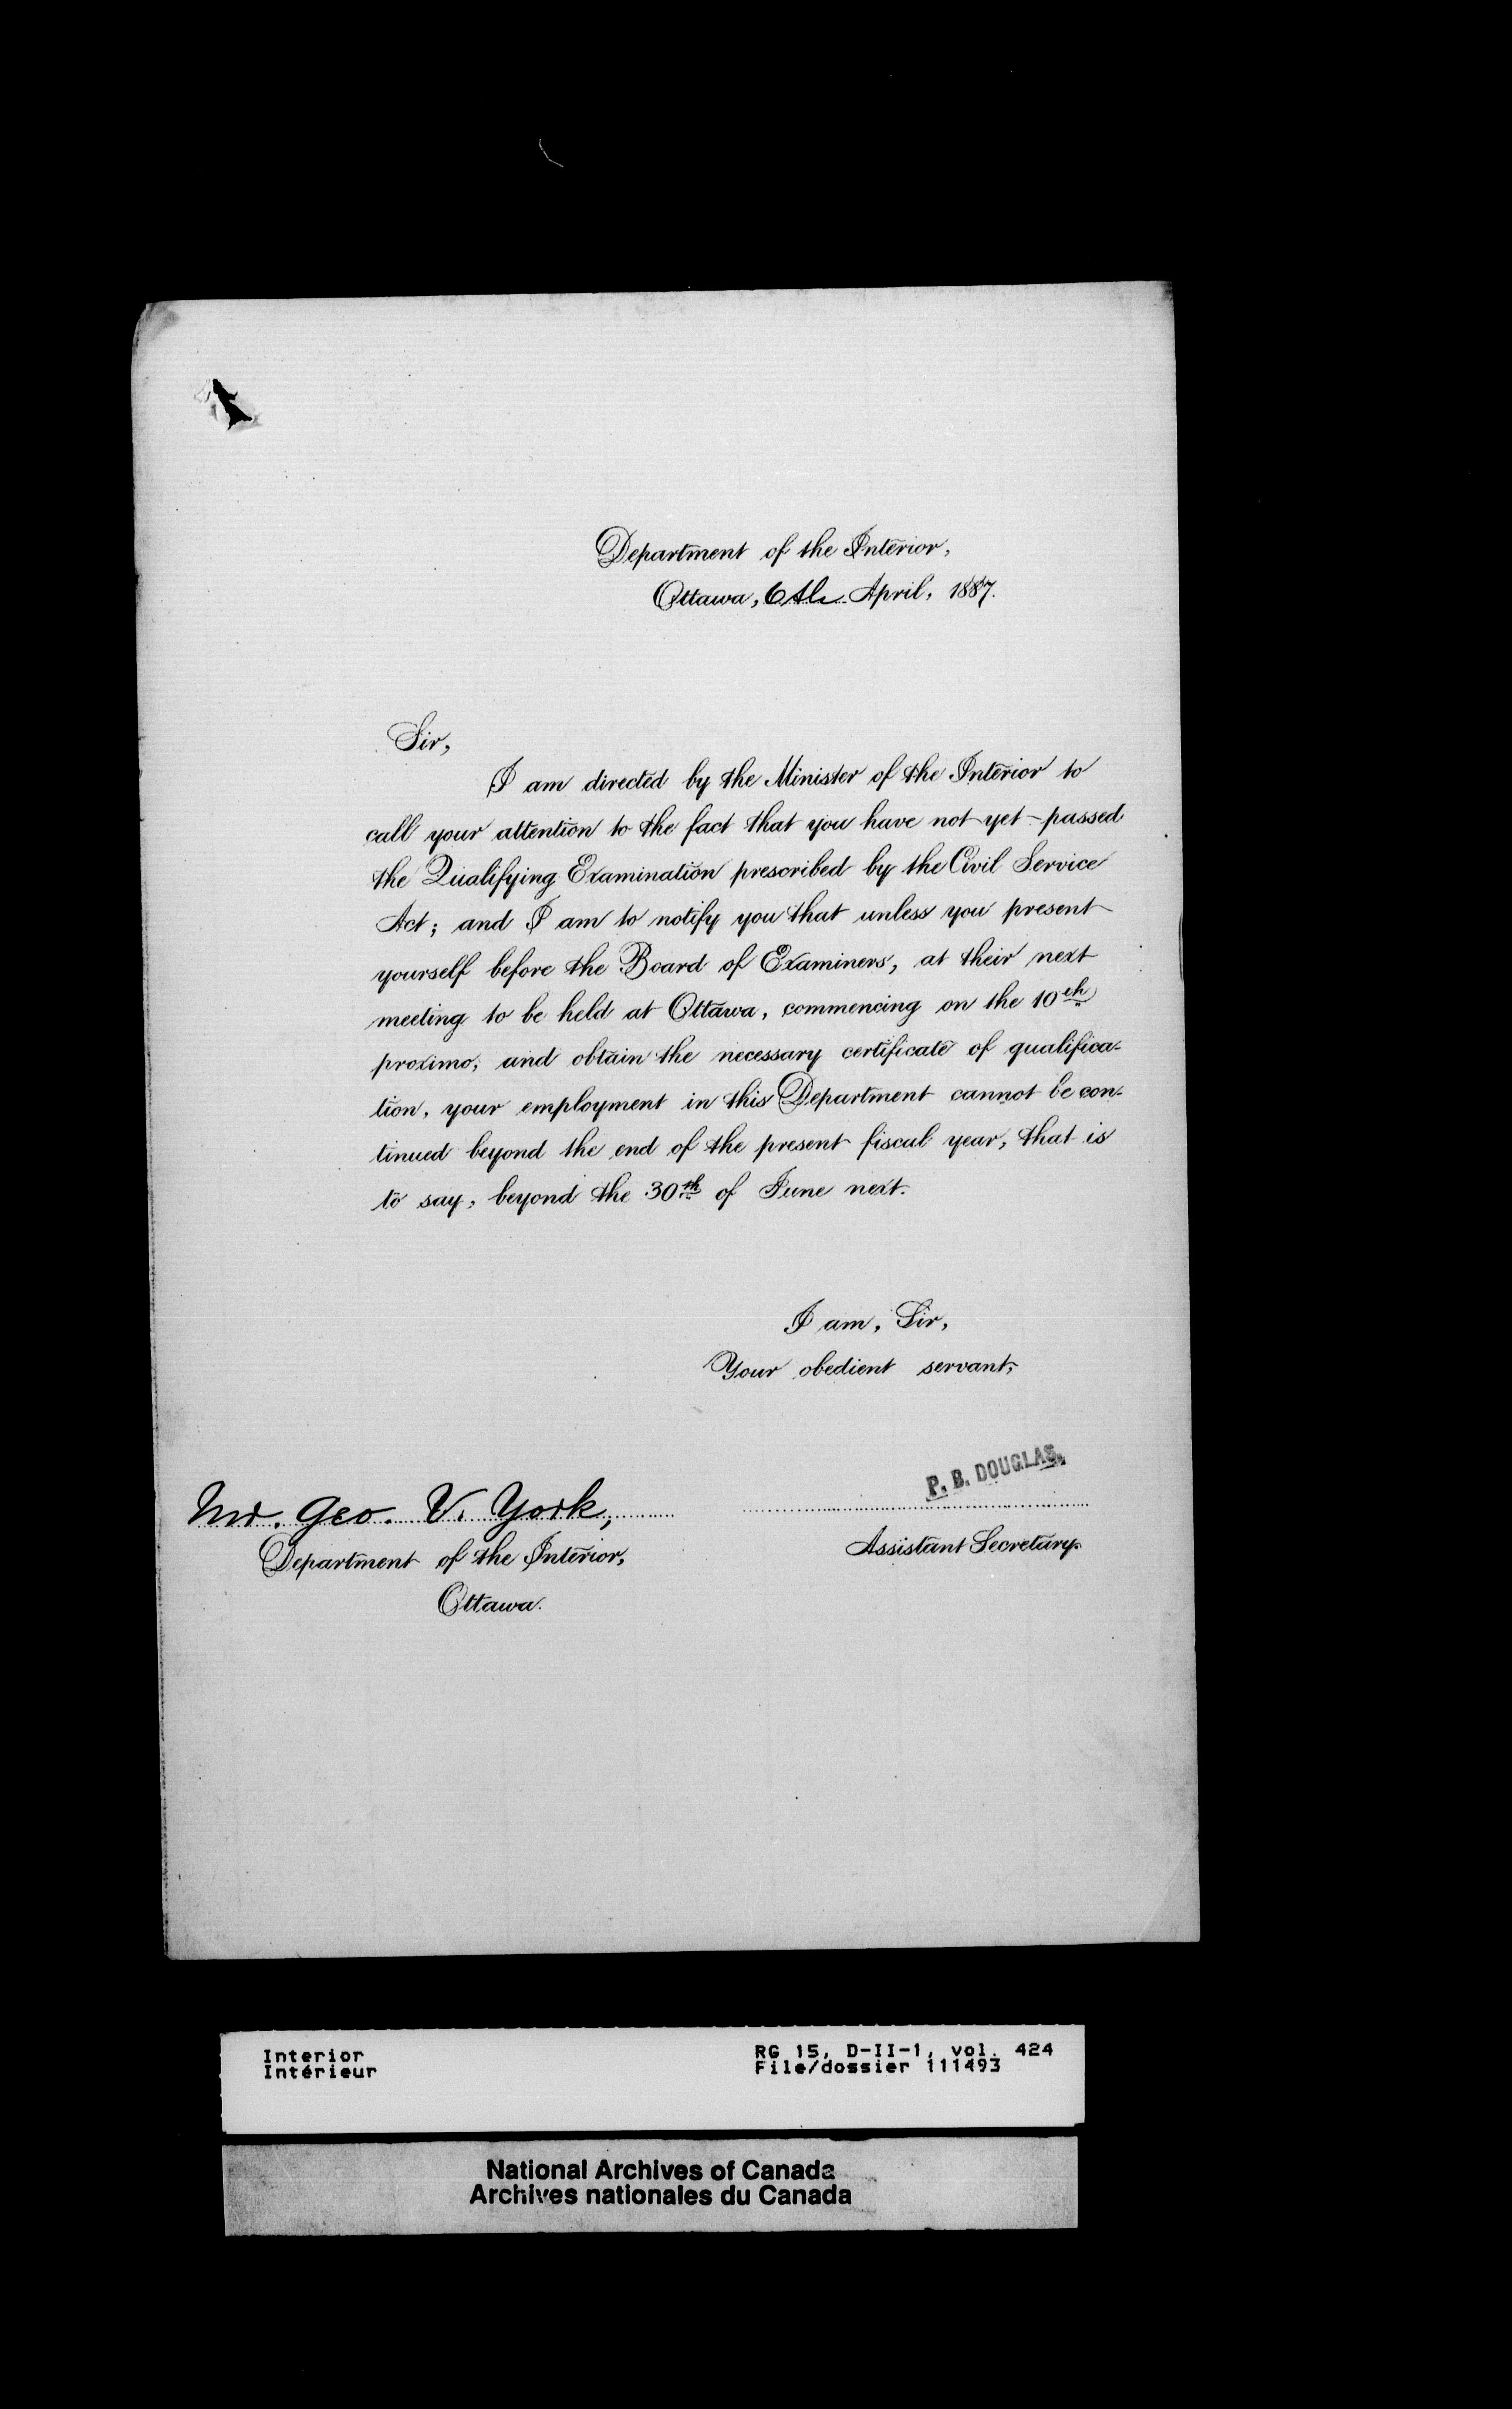 Department of the Interior,
Ottawa, 6th April, 1887.
Sir,
I am directed by the Minister of the Interior to
call your attention to the fact that you have not yet passed
the Qualifying Examination prescribed by the Civil Service
Act; and I am to notify you that unless you present
yourself before the Board of Examiners, at their next
meeting to be held at Ottawa, commencing on the 10th
proximo, and obtain the necessary certificate of qualifica-
tion, your employment in this Department cannot be con-
tinued beyond the end of the present fiscal year, that is
to say, beyond the 30th of June next.
I am, Sir,
Your obedient servant,
P. B. DOUGLAS,
Assistant Secretary.
Mr. Geo. V. York,
Department of the Interior,
Ottawa.
Interior RG 15, D-II-1, vol. 424
Intérieur File/dossier 111493
National Archives of Canada
Archives nationales du Canada